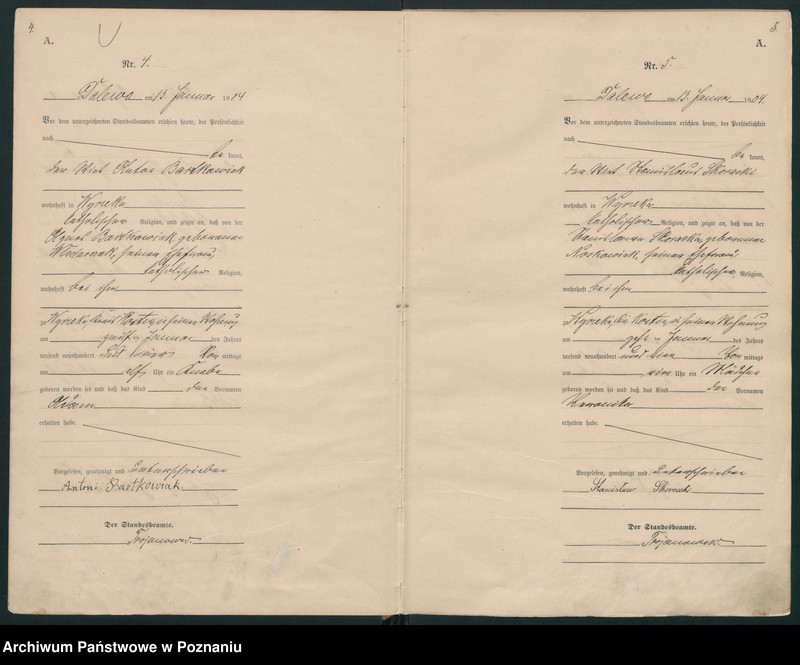 4.
A.
Nr. 4.
Dalewo am 13. Januar 1904
Vor dem unterzeichneten Standesbeamten erschien heute, der Persönlichkeit
nach
be kannt,
der Wirt Anton Bartkowiak
wohnhaft in Wyrzeka
katholischer Religion, und zeigte an, daß von der
Agnes Bartkowiak geborenen
seiner Ehefrau,
katholischer Religion,
wohnhaft bei ihm
zu Wyrzeka, Kreis Kosten in seiner Wohnung
am Januar des Jahres
tausend neunhundert und vier Vor mittags
um elf Uhr ein Knabe
geboren worden sei und daß das Kind den Vornamen
Adam
erhalten habe.
Vorgelesen, genehmigt und unterschrieben
Antoni Bartkowiak.
Der Standesbeamte.
5.
A.
Nr. 5.
Dalewo am 13. Januar 1904.
Vor dem unterzeichneten Standesbeamten erschien heute, der Persönlichkeit
nach
be kannt,
der Wirt Stanislaus
wohnhaft in Wyrzeka
katholischer Religion, und zeigte an, daß von der
geborenen
seiner Ehefrau,
katholischer Religion,
wohnhaft bei ihm
zu Wyrzeka, Kr. Kosten, in seiner Wohnung
am Januar des Jahres
tausend neunhundert und vier Vor mittags
um vier Uhr ein Mädchen
geboren worden sei und daß das Kind den Vornamen
Weronika
erhalten habe.
Vorgelesen, genehmigt und unterschrieben
Stanisław
Der Standesbeamte.
Archiwum Państwowe w Poznaniu